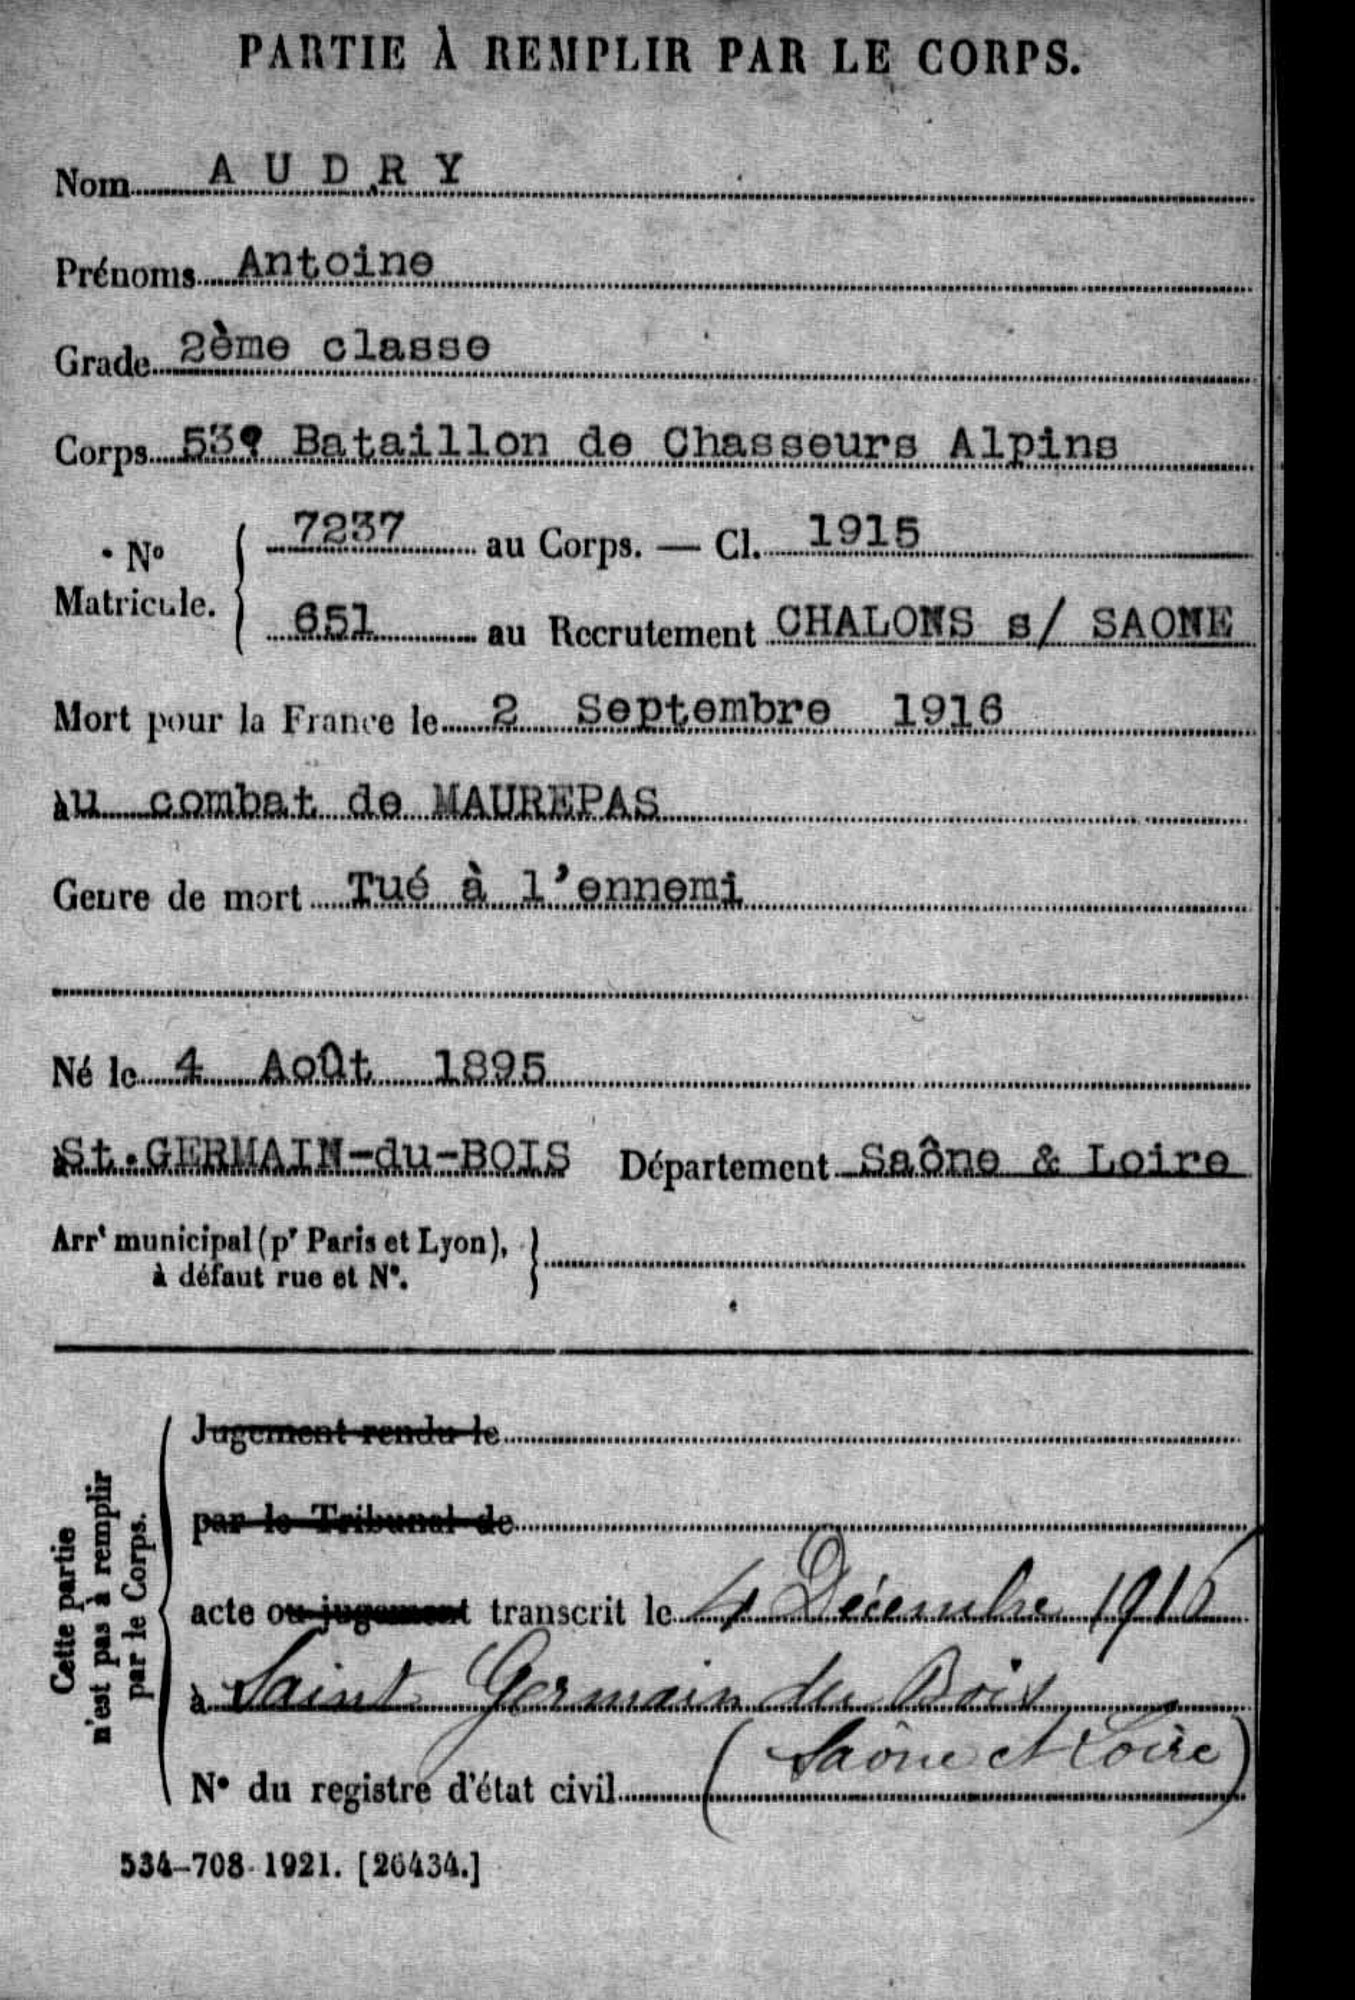 PARTIE À REMPLIR PAR LE CORPS.
Nom AUDRY
Prénoms Antoine
Grade 2ème classe
Corps 53e Bataillon de Chasseurs Alpins
N° Matricule. { 7237 au Corps. — Cl. 1915
651 au Recrutement CHALONS s/ SAONE
Mort pour la France le 2 Septembre 1916
au combat de MAUREPAS
Genre de mort Tué à l'ennemi
Né le 4 Août 1895
à St.GERMAIN-du-BOIS Département Saône & Loire
Arrt municipal (pr Paris et Lyon), }
à défaut rue et N°.
Cette partie
n'est pas à remplir
par le Corps.
Jugement rendu le
par le Tribunal de
acte ou jugement transcrit le 4 Décembre 1916
à Saint Germain du Bois
(Saône et Loire)
N° du registre d'état civil
534-708-1921. [26434.]